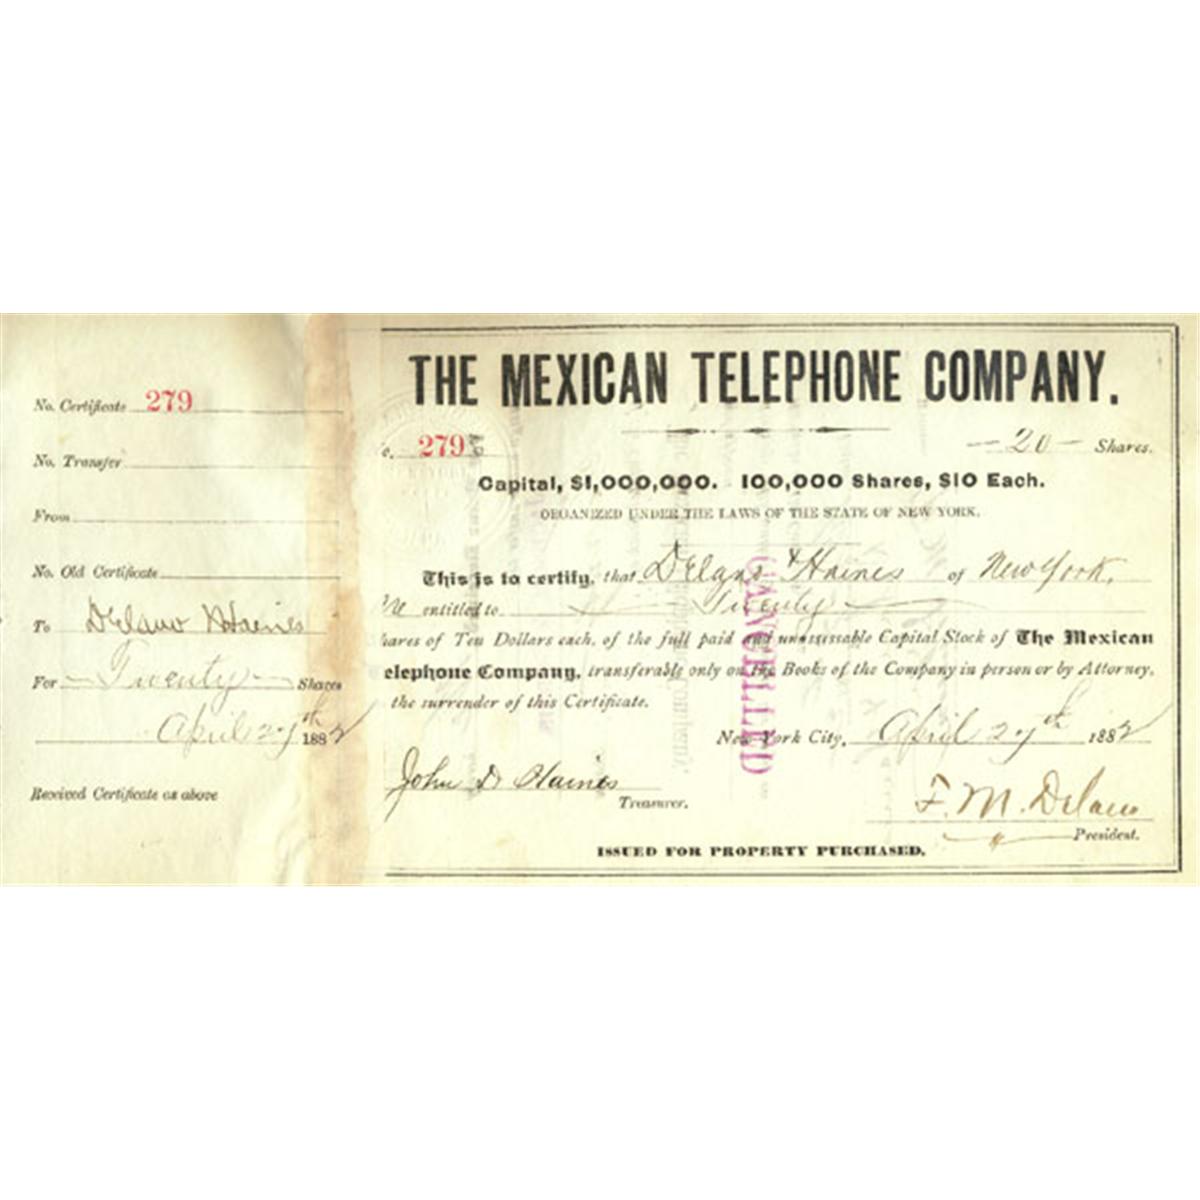 No. Certificate 279
No. Transfer
From
No. Old Certificate
To Delano & Haines
For Twenty Shares
April 27th 1882
Received Certificate as above
THE MEXICAN TELEPHONE COMPANY.
o. 279
20 Shares.
Capital, $1,000,000. 100,000 Shares, $10 Each.
ORGANIZED UNDER THE LAWS OF THE STATE OF NEW YORK.
This is to certify, that Delano & Haines of New York,
entitled to Twenty
hares of Ten Dollars each, of the full paid and unassessable Capital Stock of The Mexican
elephone Company, transferable only on the Books of the Company in person or by Attorney,
the surrender of this Certificate.
New York City, April 27th 1882
John D Haines
Treasurer.
F. M. Delano
President.
ISSUED FOR PROPERTY PURCHASED.
CANCELLED